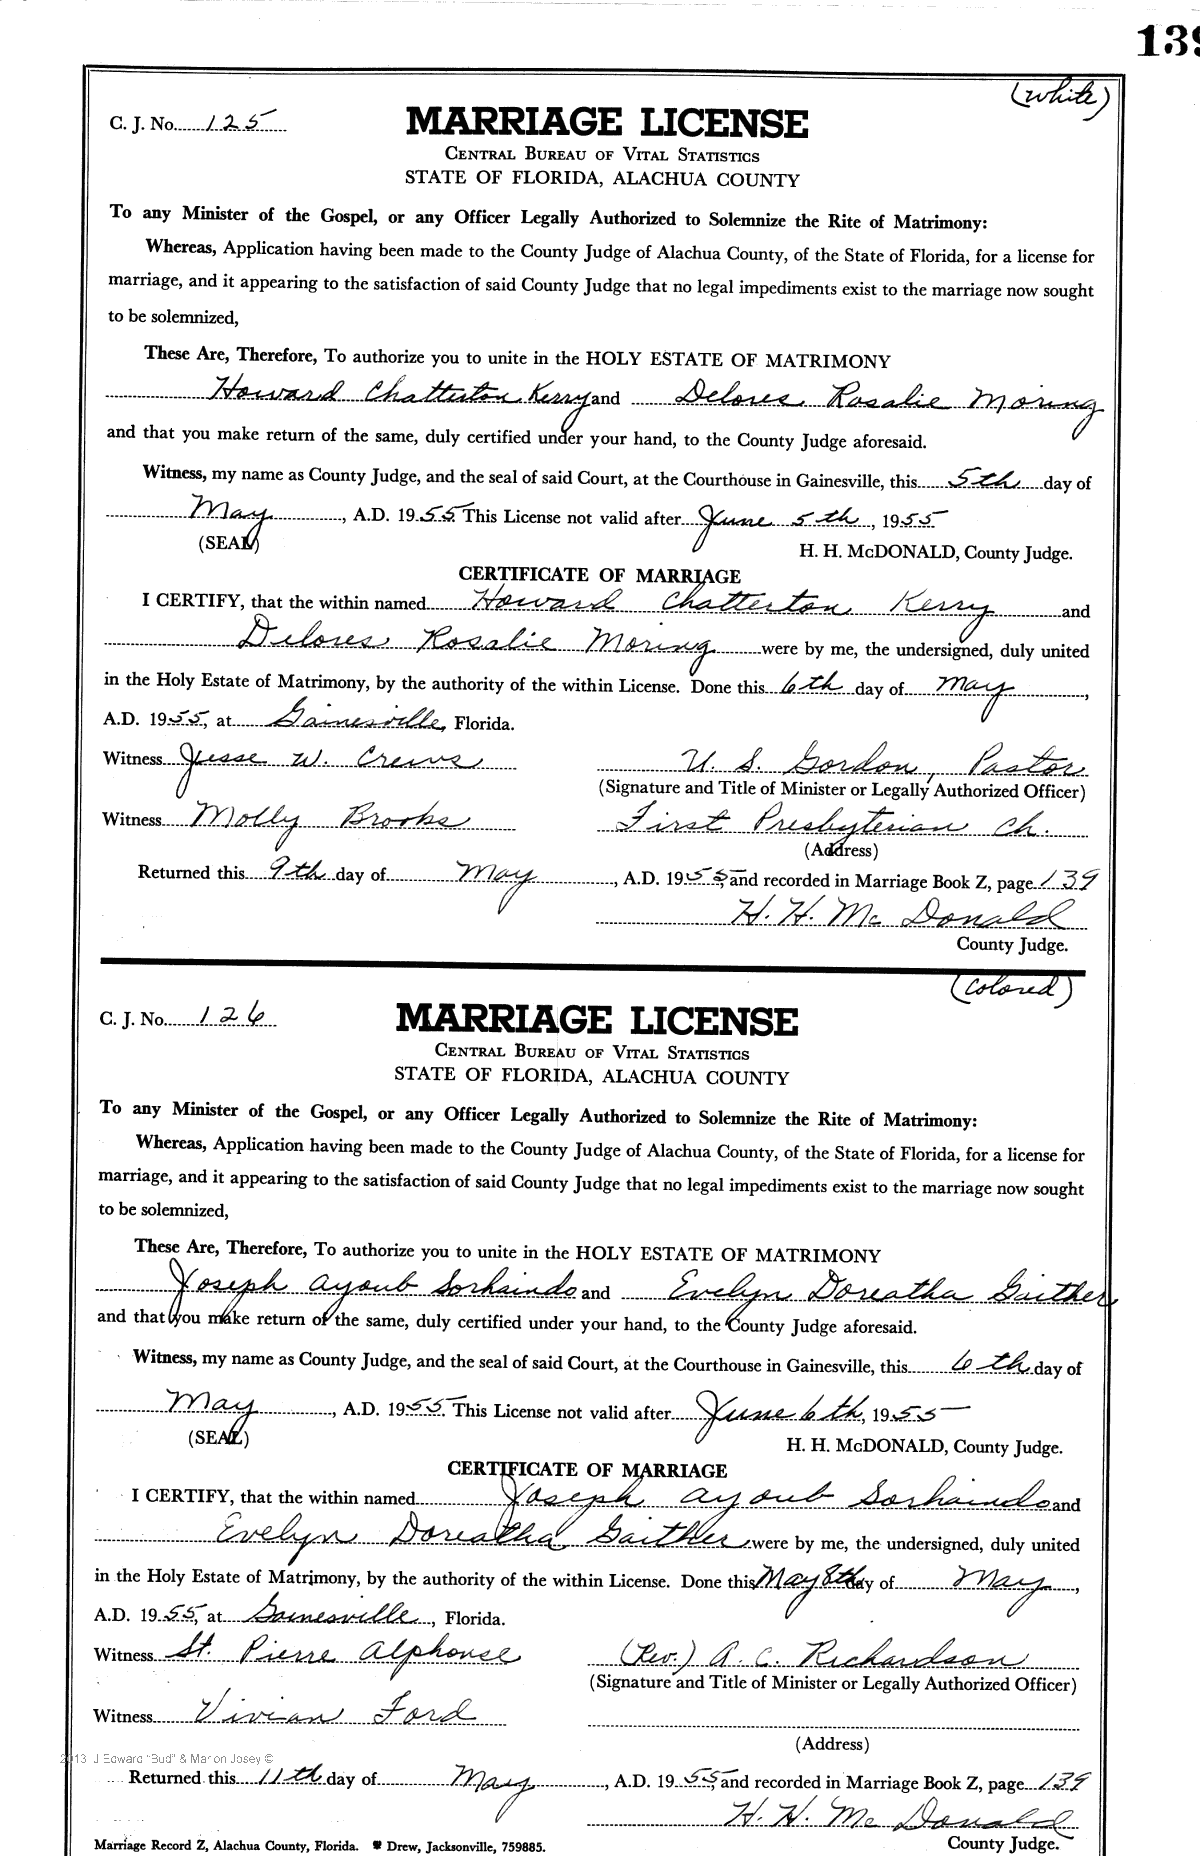 139
(white)
C. J. No. 125
MARRIAGE LICENSE
CENTRAL BUREAU OF VITAL STATISTICS
STATE OF FLORIDA, ALACHUA COUNTY
To any Minister of the Gospel, or any Officer Legally Authorized to Solemnize the Rite of Matrimony:
Whereas, Application having been made to the County Judge of Alachua County, of the State of Florida, for a license for
marriage, and it appearing to the satisfaction of said County Judge that no legal impediments exist to the marriage now sought
to be solemnized,
These Are, Therefore, To authorize you to unite in the HOLY ESTATE OF MATRIMONY
Howard Chatterton Kerry and Delores Rosalie Moring
and that you make return of the same, duly certified under your hand, to the County Judge aforesaid.
Witness, my name as County Judge, and the seal of said Court, at the Courthouse in Gainesville, this 5th day of
May, A.D. 1955. This License not valid after June 5th, 1955
(SEAL) H. H. McDONALD, County Judge.
CERTIFICATE OF MARRIAGE
I CERTIFY, that the within named Howard Chatterton Kerry and
Delores Rosalie Moring were by me, the undersigned, duly united
in the Holy Estate of Matrimony, by the authority of the within License. Done this 6th day of May,
A.D. 1955, at Gainesville, Florida.
Witness Jesse W. Crews U. S. Gordon, Pastor
(Signature and Title of Minister or Legally Authorized Officer)
Witness Molly Brooks First Presbyterian Ch.
(Address)
Returned this 9th day of May, A.D. 1955, and recorded in Marriage Book Z, page 139
H. H. McDonald
County Judge.
(colored)
C. J. No. 126
MARRIAGE LICENSE
CENTRAL BUREAU OF VITAL STATISTICS
STATE OF FLORIDA, ALACHUA COUNTY
To any Minister of the Gospel, or any Officer Legally Authorized to Solemnize the Rite of Matrimony:
Whereas, Application having been made to the County Judge of Alachua County, of the State of Florida, for a license for
marriage, and it appearing to the satisfaction of said County Judge that no legal impediments exist to the marriage now sought
to be solemnized,
These Are, Therefore, To authorize you to unite in the HOLY ESTATE OF MATRIMONY
Joseph Ayoub Sorhaindo and Evelyn Doreatha Gaither
and that you make return of the same, duly certified under your hand, to the County Judge aforesaid.
Witness, my name as County Judge, and the seal of said Court, at the Courthouse in Gainesville, this 6th day of
May, A.D. 1955. This License not valid after June 6th, 1955
(SEAL) H. H. McDONALD, County Judge.
CERTIFICATE OF MARRIAGE
I CERTIFY, that the within named Joseph Ayoub Sorhaindo and
Evelyn Doreatha Gaither were by me, the undersigned, duly united
in the Holy Estate of Matrimony, by the authority of the within License. Done this May 8th day of May,
A.D. 1955, at Gainesville, Florida.
Witness St. Pierre Alphonse (Rev.) A. C. Richardson
(Signature and Title of Minister or Legally Authorized Officer)
Witness Vivian Ford
(Address)
2013 J Edward "Bud" & Marion Josey ©
Returned this 11th day of May, A.D. 1955, and recorded in Marriage Book Z, page 139
H. H. McDonald
County Judge.
Marriage Record Z, Alachua County, Florida. Drew, Jacksonville, 759885.